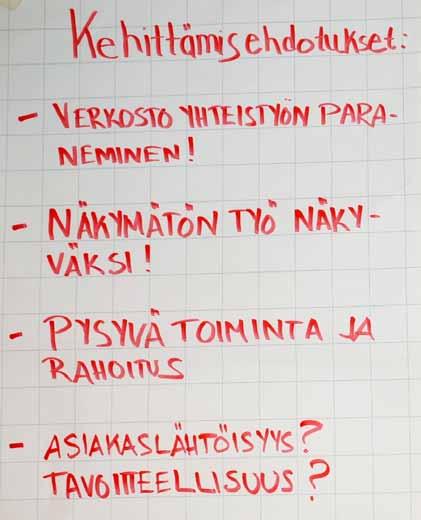 Kehittämisehdotukset:
- VERKOSTO YHTEISTYÖN PARA-
NEMINEN!
- NÄKYMÄTÖN TYÖ NÄKY-
VÄKSI!
- PYSYVÄ TOIMINTA JA
RAHOITUS
- ASIAKASLÄHTÖISYYS?
TAVOITTEELLISUUS?